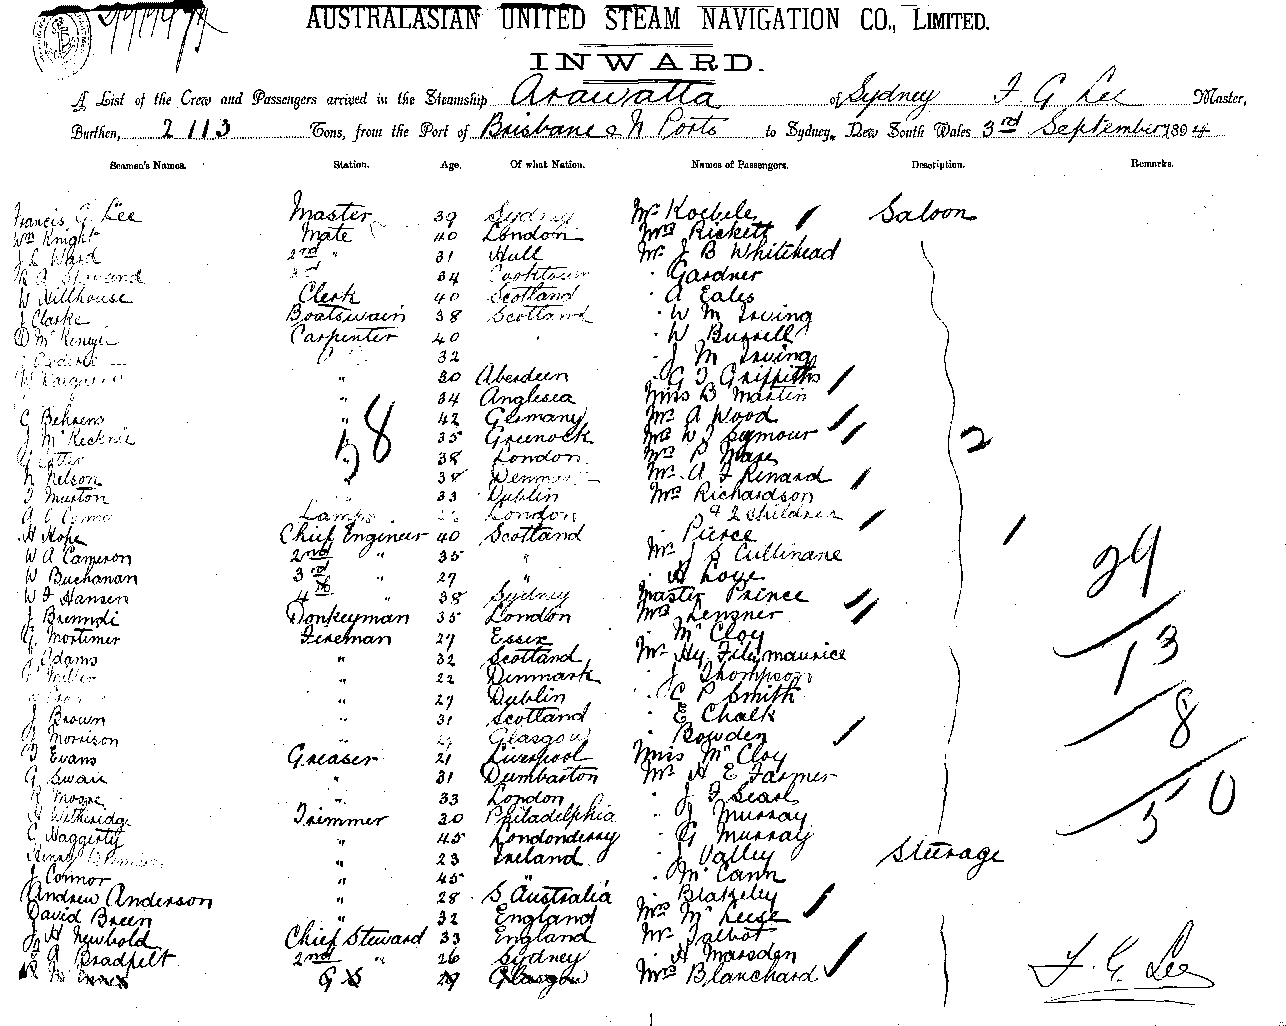 AUSTRALASIAN UNITED STEAM NAVIGATION CO., LIMITED.
INWARD.
A List of the Crew and Passengers arrived in the Steamship Arawatta of Sydney F G Lee Master,
Burthen, 2113 Tons, from the Port of Brisbane & N Ports to Sydney, New South Wales 3rd September 1894
Seamen's Names. Station. Age. Of what Nation. Names of Passengers. Description. Remarks.
Francis G Lee Master 39 Sydney Mr Koebele Saloon
Wm Knight Mate 40 London Mrs Rickett
J L Ward 2nd " 31 Hull Mr J B Whitehead
3rd 34 Cooktown " Gardner
W Hillhouse Clerk 40 Scotland " A Eales
J Clarke Boatswain 38 Scotland " W M Irving
Carpenter 40 " W Burrell
32 " J M Irving
" 30 Aberdeen " G T Griffiths
" 34 Anglesea Miss B Martin
G Behrens " 42 Germany Mr A Wood
J " 35 Greenock Mr W J Seymour 2
58
" 38 London Mrs P Mare
N Nelson " 38 Denmark Mr A F Renard
T Murton " 33 Dublin Mrs Richardson
Lamps London & 2 children
H Hope Chief Engineer 40 Scotland " Pierce 1
W A Cameron 2nd " 35 " Mr J S Cullinane
W Buchanan 3rd " 27 " " A Love 29
W F Hansen 4th " 38 Sydney Master Prince
J Brenndi Donkeyman 35 London Mrs Lensner
G Mortimer Fireman 27 Essex " McCloy 13
Adams " 32 Scotland Mr Hy Fitzmaurice
" 22 Denmark " J Thompson
" 27 Dublin " C P Smith
J Brown " 31 Scotland " E Chalk 8
Morrison " Glasgow " Bowden
Evans Greaser 21 Liverpool Miss McCloy
G Swan " 31 Dumbarton Mr H E Farmer
R Moore " 33 London " J F Searl 50
Witheridge Trimmer 30 Philadelphia " J Murray
C Haggerty " 45 Londonderry " G Murray
Henry " 23 Ireland " J Valley Steerage
J Connor " 45 " " McCann
Andrew Anderson " 28 S Australia " Blakeley
David Breen " 32 England Mrs McLeese
J H Newbold Chief Steward 33 England Mr Talbot
G A Bradfelt 2nd " 26 Sydney " A Marsden
G S 29 Glasgow Mrs Blanchard F. G. Lee